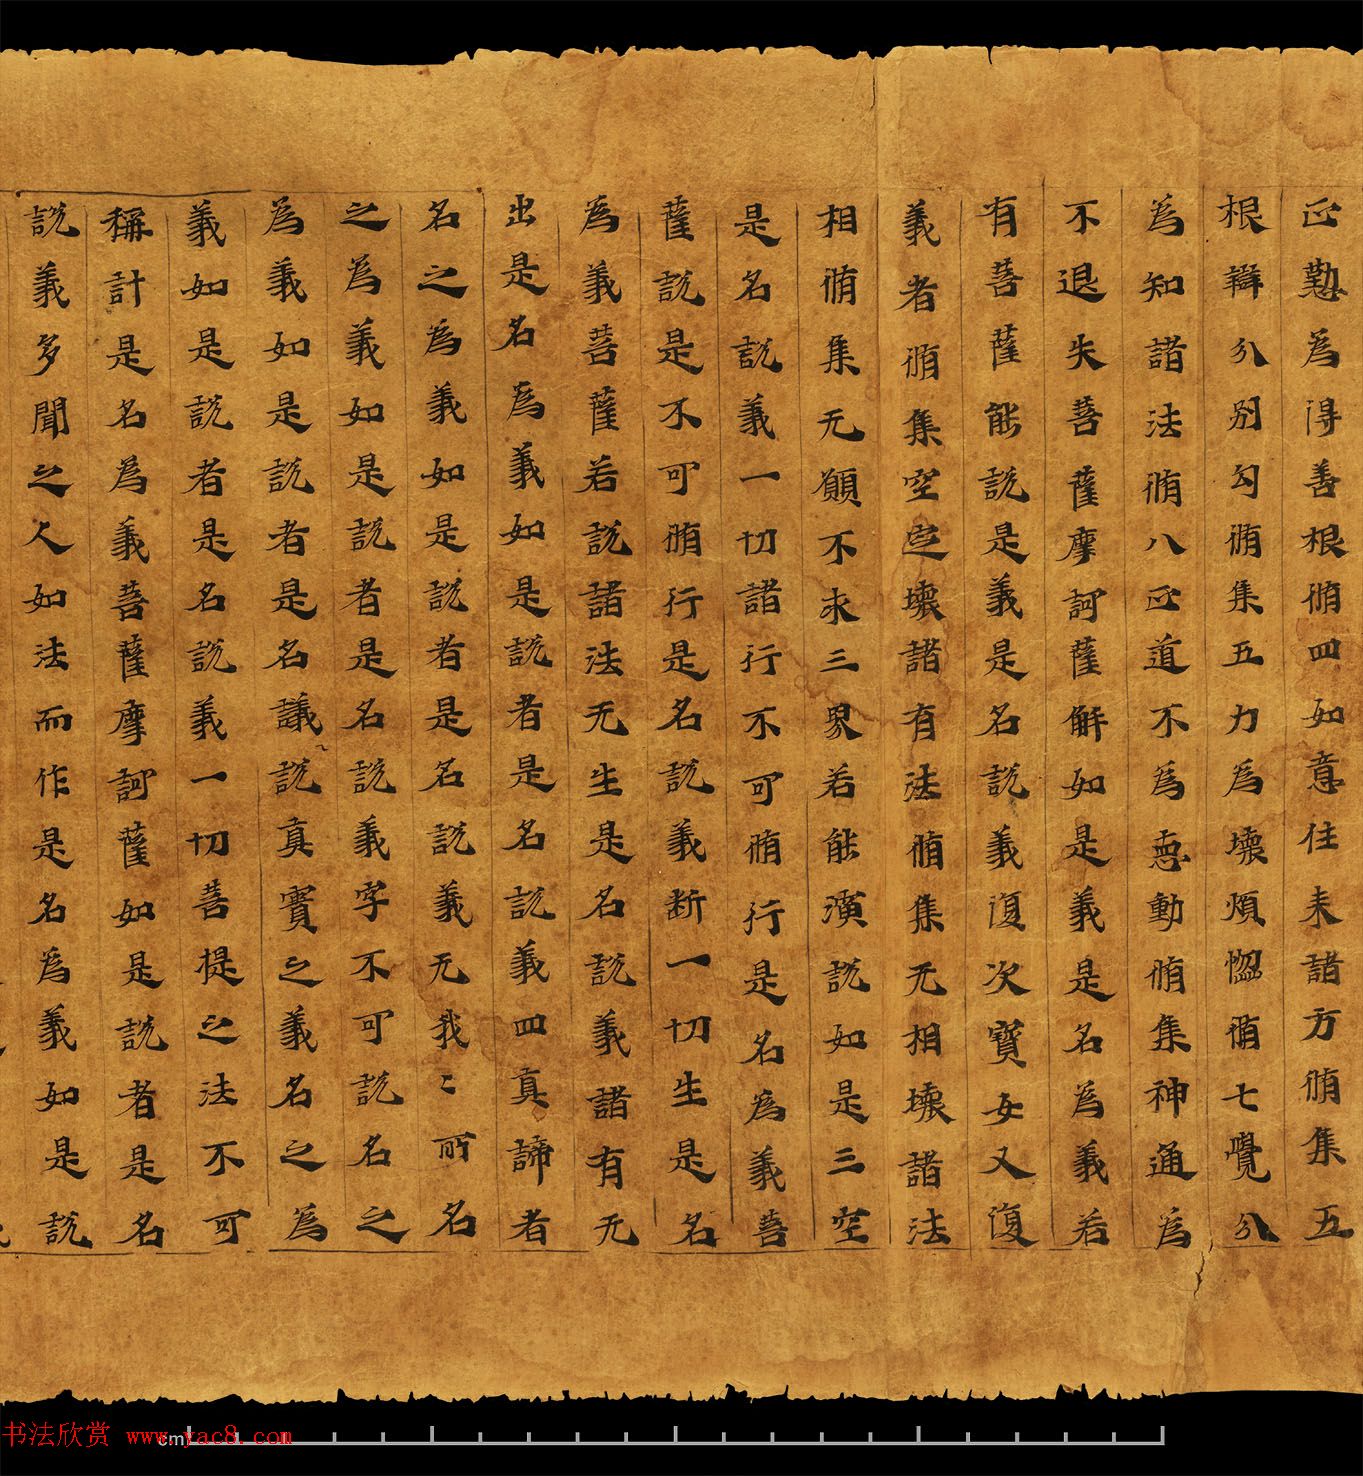 正懃為得善根脩四如意往来諸方脩集五
根辯分別句脩集五力為壞煩惱脩七覺分
為知諸法脩八正道不為惡動脩集神通為
不退失菩薩摩訶薩解如是義是名為義若
有菩薩能說是義是名說義復次寶女又復
義者脩集空定壞諸有法脩集无相壞諸法
相脩集无願不求三界若能演說如是三空
是名說義一切諸行不可脩行是名為義菩
薩說是不可脩行是名說義断一切生是名
為義菩薩若說諸法无生是名說義諸有无
出是名為義如是說者是名說義四真諦者
名之為義如是說者是名說義无我〻所名
之為義如是說者是名說義字不可說名之
為義如是說者是名議說真實之義名之為
義如是說者是名說義一切菩提之法不可
稱計是名為義菩薩摩訶薩如是說者是名
說義多聞之人如法而作是名為義如是說
书法欣赏 www.yac8.com
cm